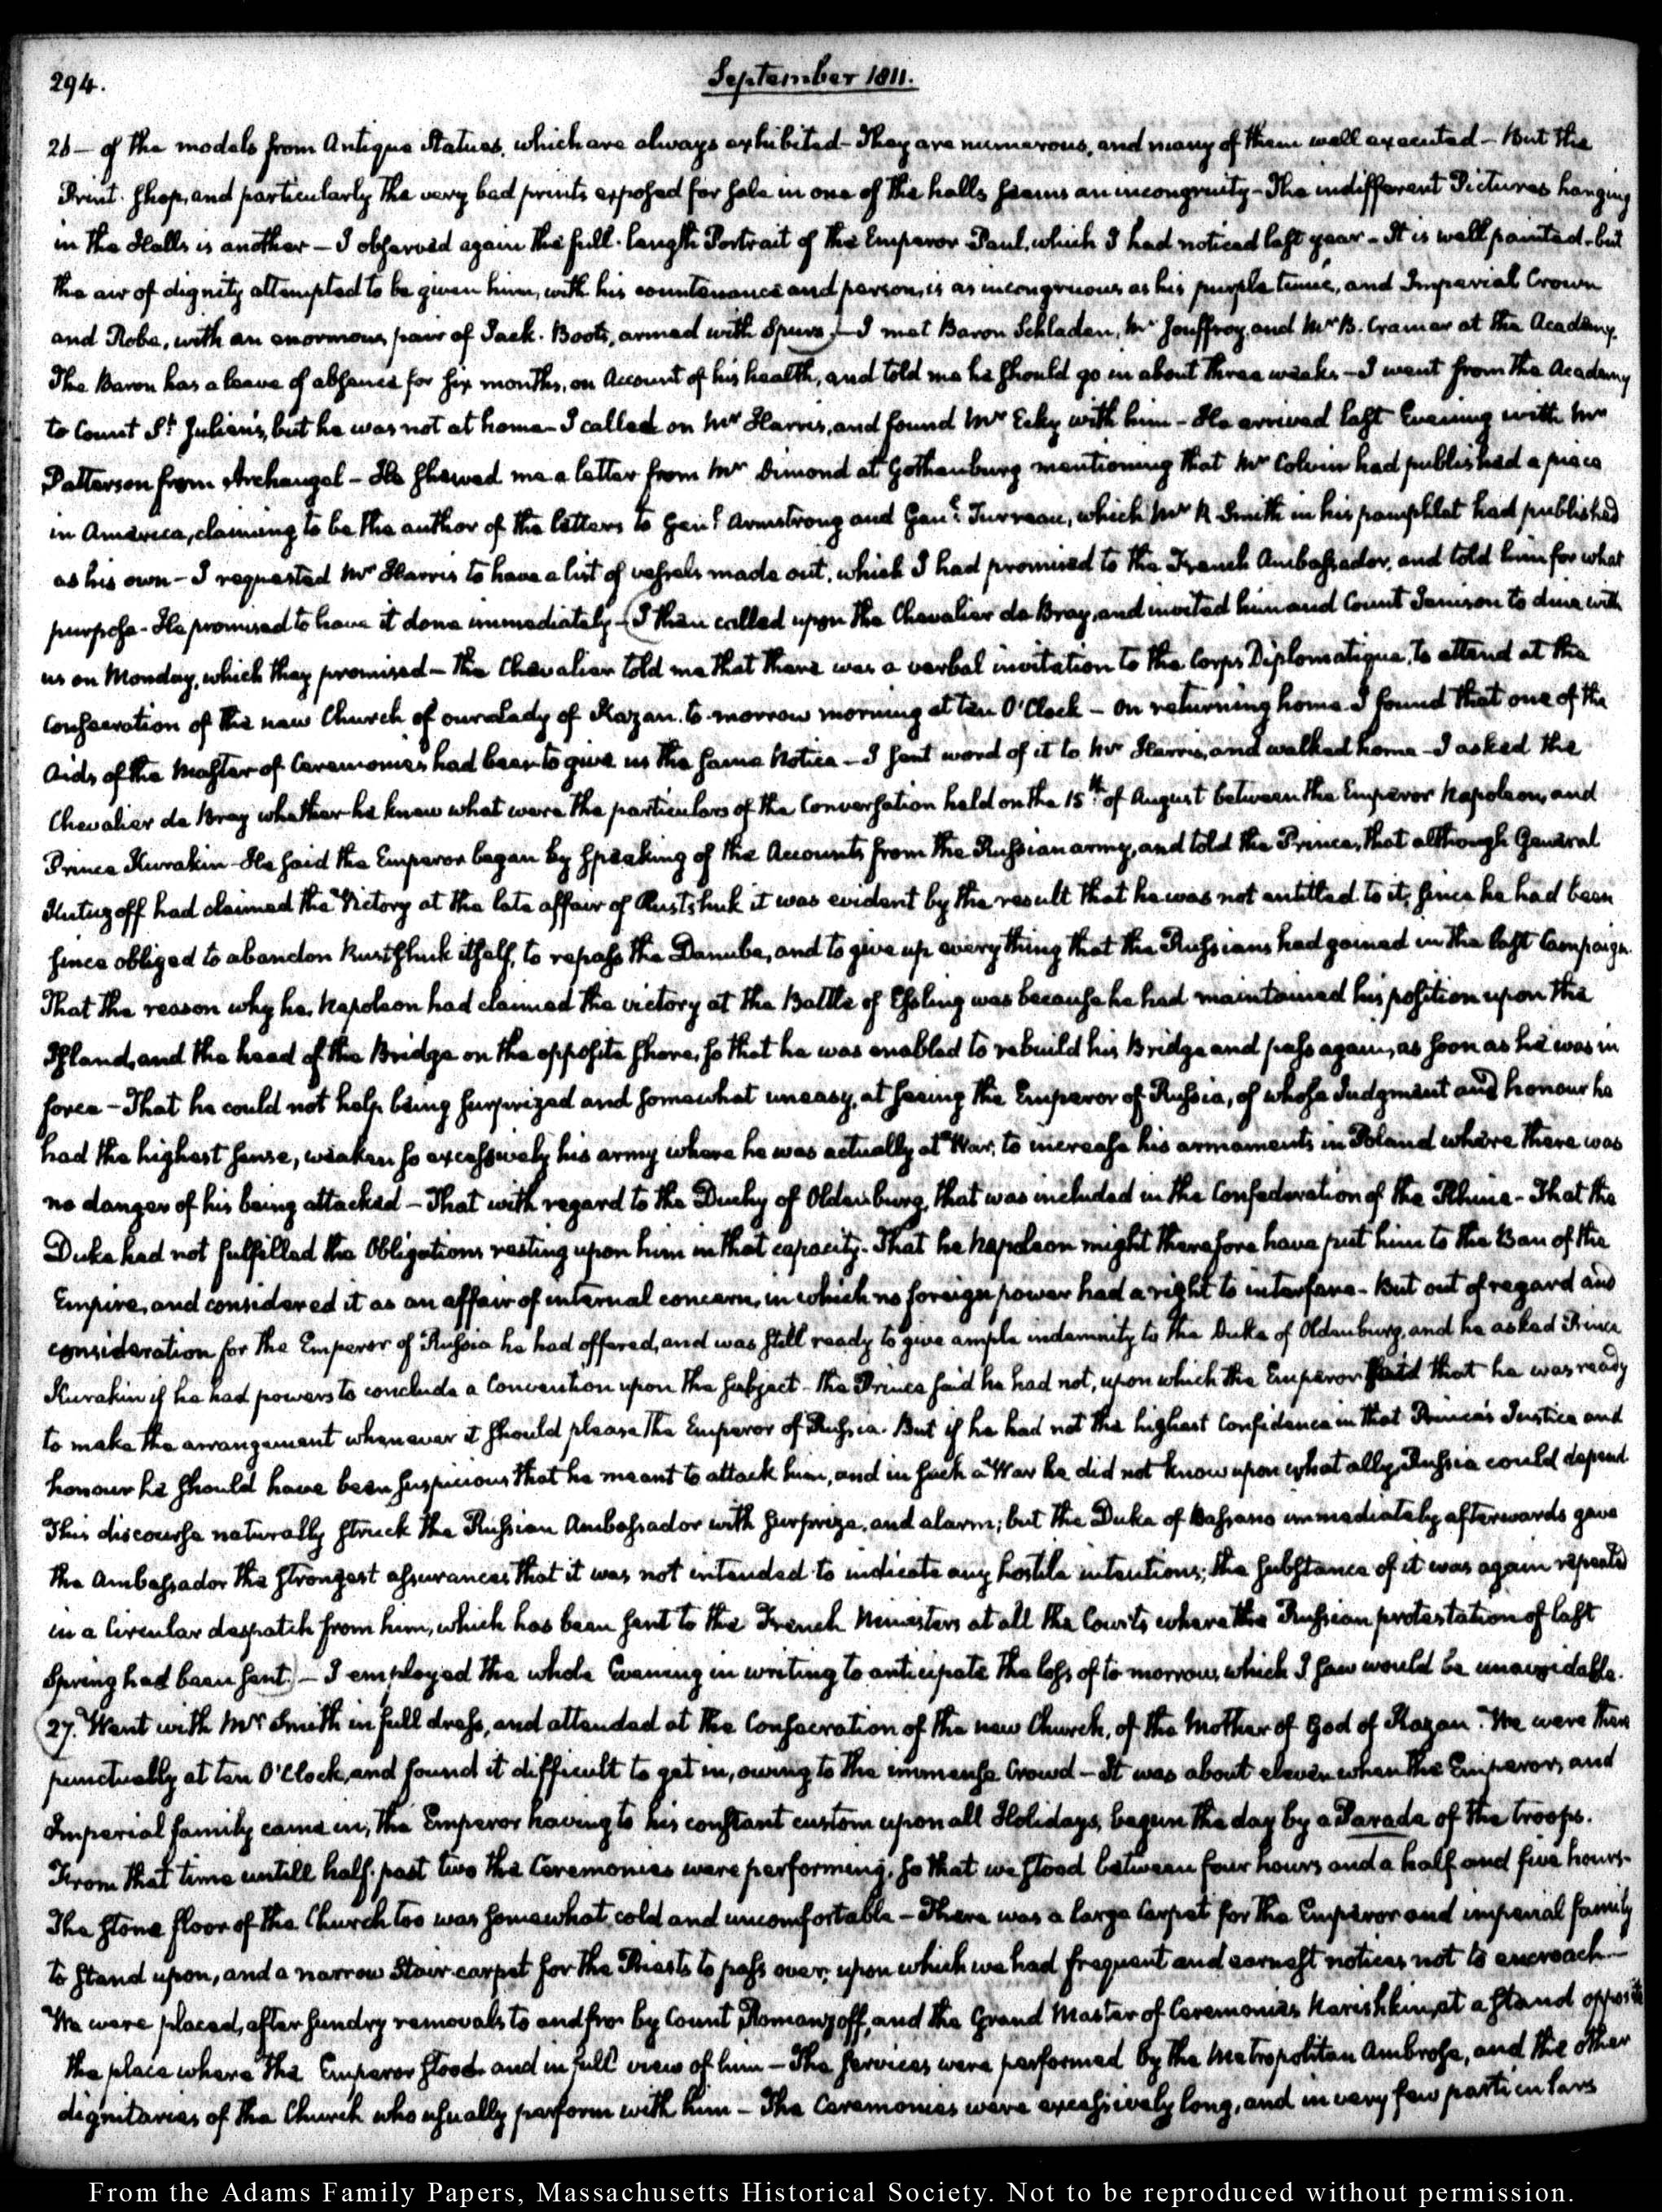 294.
September 1811.
26 — of the models from Antique Statues, which are always exhibited — They are numerous, and many of them well executed — But the
Print-shop, and particularly the very bad prints exposed for sale in one of the halls seems an incongruity — The indifferent Pictures hanging
in the Halls is another — I observed again the full-length Portrait of the Emperor Paul, which I had noticed last year — It is well painted — but
the air of dignity attempted to be given him, with his countenance and person, is as incongruous as his purple tunic, and Imperial Crown
and Robe, with an enormous pair of Jack-Boots, armed with Spurs.) — I met Baron Schladen, Mr Jouffroy, and Mr B. Cramer at the Academy.
The Baron has a leave of absence for six months, on Account of his health, and told me he should go in about three weeks — I went from the Academy
to Count St Julien's, but he was not at home — I called on Mr Harris, and found Mr Erky with him — He arrived last Evening with Mr
Patterson from Archangel — He shewed me a letter from Mr Dimond at Gothenburg mentioning that Mr Colvin had published a piece
in America, claiming to be the author of the letters to Genl Armstrong and Genl Turreau, which Mr R Smith in his pamphlet had published
as his own — I requested Mr Harris to have a list of vessels made out, which I had promised to the French Ambassador, and told him for what
purpose — He promised to have it done immediately — (I then called upon the Chevalier de Bray, and invited him and Count Jenison to dine with
us on Monday, which they promised — the Chevalier told me that there was a verbal invitation to the Corps Diplomatique, to attend at the
Consecration of the new Church of our Lady of Kazan, to-morrow morning at ten O'Clock — On returning home I found that one of the
Aids of the Master of Ceremonies had been to give us the same Notice — I sent word of it to Mr Harris, and walked home — I asked the
Chevalier de Bray whether he knew what were the particulars of the Conversation held on the 15th of August between the Emperor Napoleon, and
Prince Kurakin — He said the Emperor began by speaking of the Accounts from the Russian army, and told the Prince, that although General
Kutuzoff had claimed the Victory at the late affair of Rustshuk it was evident by the result that he was not entitled to it, since he had been
since obliged to abandon Rustshuk itself, to repass the Danube, and to give up every thing that the Russians had gained in the last Campaign.
That the reason why he, Napoleon had claimed the victory at the Battle of Essling was because he had maintained his position upon the
Island, and the head of the Bridge on the opposite shore, so that he was enabled to rebuild his Bridge and pass again, as soon as he was in
force — That he could not help being surprized and somewhat uneasy, at seeing the Emperor of Russia, of whose Judgment and honour he
had the highest sense, weaken so excessively his army where he was actually at War, to increase his armaments in Poland where there was
no danger of his being attacked — That with regard to the Duchy of Oldenburg, that was included in the Confederation of the Rhine — That the
Duke had not fulfilled the Obligations resting upon him in that capacity — That he Napoleon might therefore have put him to the Ban of the
Empire, and considered it as an affair of internal concern, in which no foreign power had a right to interfere — But out of regard and
consideration for the Emperor of Russia he had offered, and was still ready to give ample indemnity to the Duke of Oldenburg, and he asked Prince
Kurakin if he had powers to conclude a Convention upon the subject — the Prince said he had not, upon which the Emperor said that he was ready
to make the arrangement whenever it should please the Emperor of Russia. But if he had not the highest Confidence in that Prince's Justice and
honour he should have been suspicious that he meant to attack him, and in such a War he did not know upon what ally Russia could depend
This discourse naturally struck the Russian Ambassador with surprize, and alarm; but the Duke of Bassano immediately afterwards gave
the Ambassador the strongest assurances that it was not intended to indicate any hostile intentions; the substance of it was again repeated
in a Circular despatch from him, which has been sent to the French Ministers at all the Courts where the Russian protestation of last
Spring had been sent.) — I employed the whole Evening in writing to anticipate the loss of to morrow, which I saw would be unavoidable.
(27. Went with Mr Smith in full dress, and attended at the Consecration of the new Church, of the Mother of God of Kazan. We were there
punctually at ten O'Clock, and found it difficult to get in, owing to the immense Crowd — It was about eleven when the Emperor, and
Imperial family came in, the Emperor having to his constant custom upon all Holidays, begun the day by a Parade of the troops.
From that time untill half-past two the Ceremonies were performing, so that we stood between four hours and a half and five hours.
The stone floor of the Church too was somewhat cold and uncomfortable — There was a large Carpet for the Emperor and imperial family
to stand upon, and a narrow Stair-carpet for the Priests to pass over, upon which we had frequent and earnest notices not to encroach —
We were placed, after sundry removals to and fro by Count Romanzoff, and the Grand Master of Ceremonies Narishkin, at a stand opposite
the place where the Emperor stood and in full view of him — The services were performed by the Metropolitan Ambrose, and the other
dignitaries of the Church who usually perform with him — The Ceremonies were excessively long, and in very few particulars
From the Adams Family Papers, Massachusetts Historical Society. Not to be reproduced without permission.